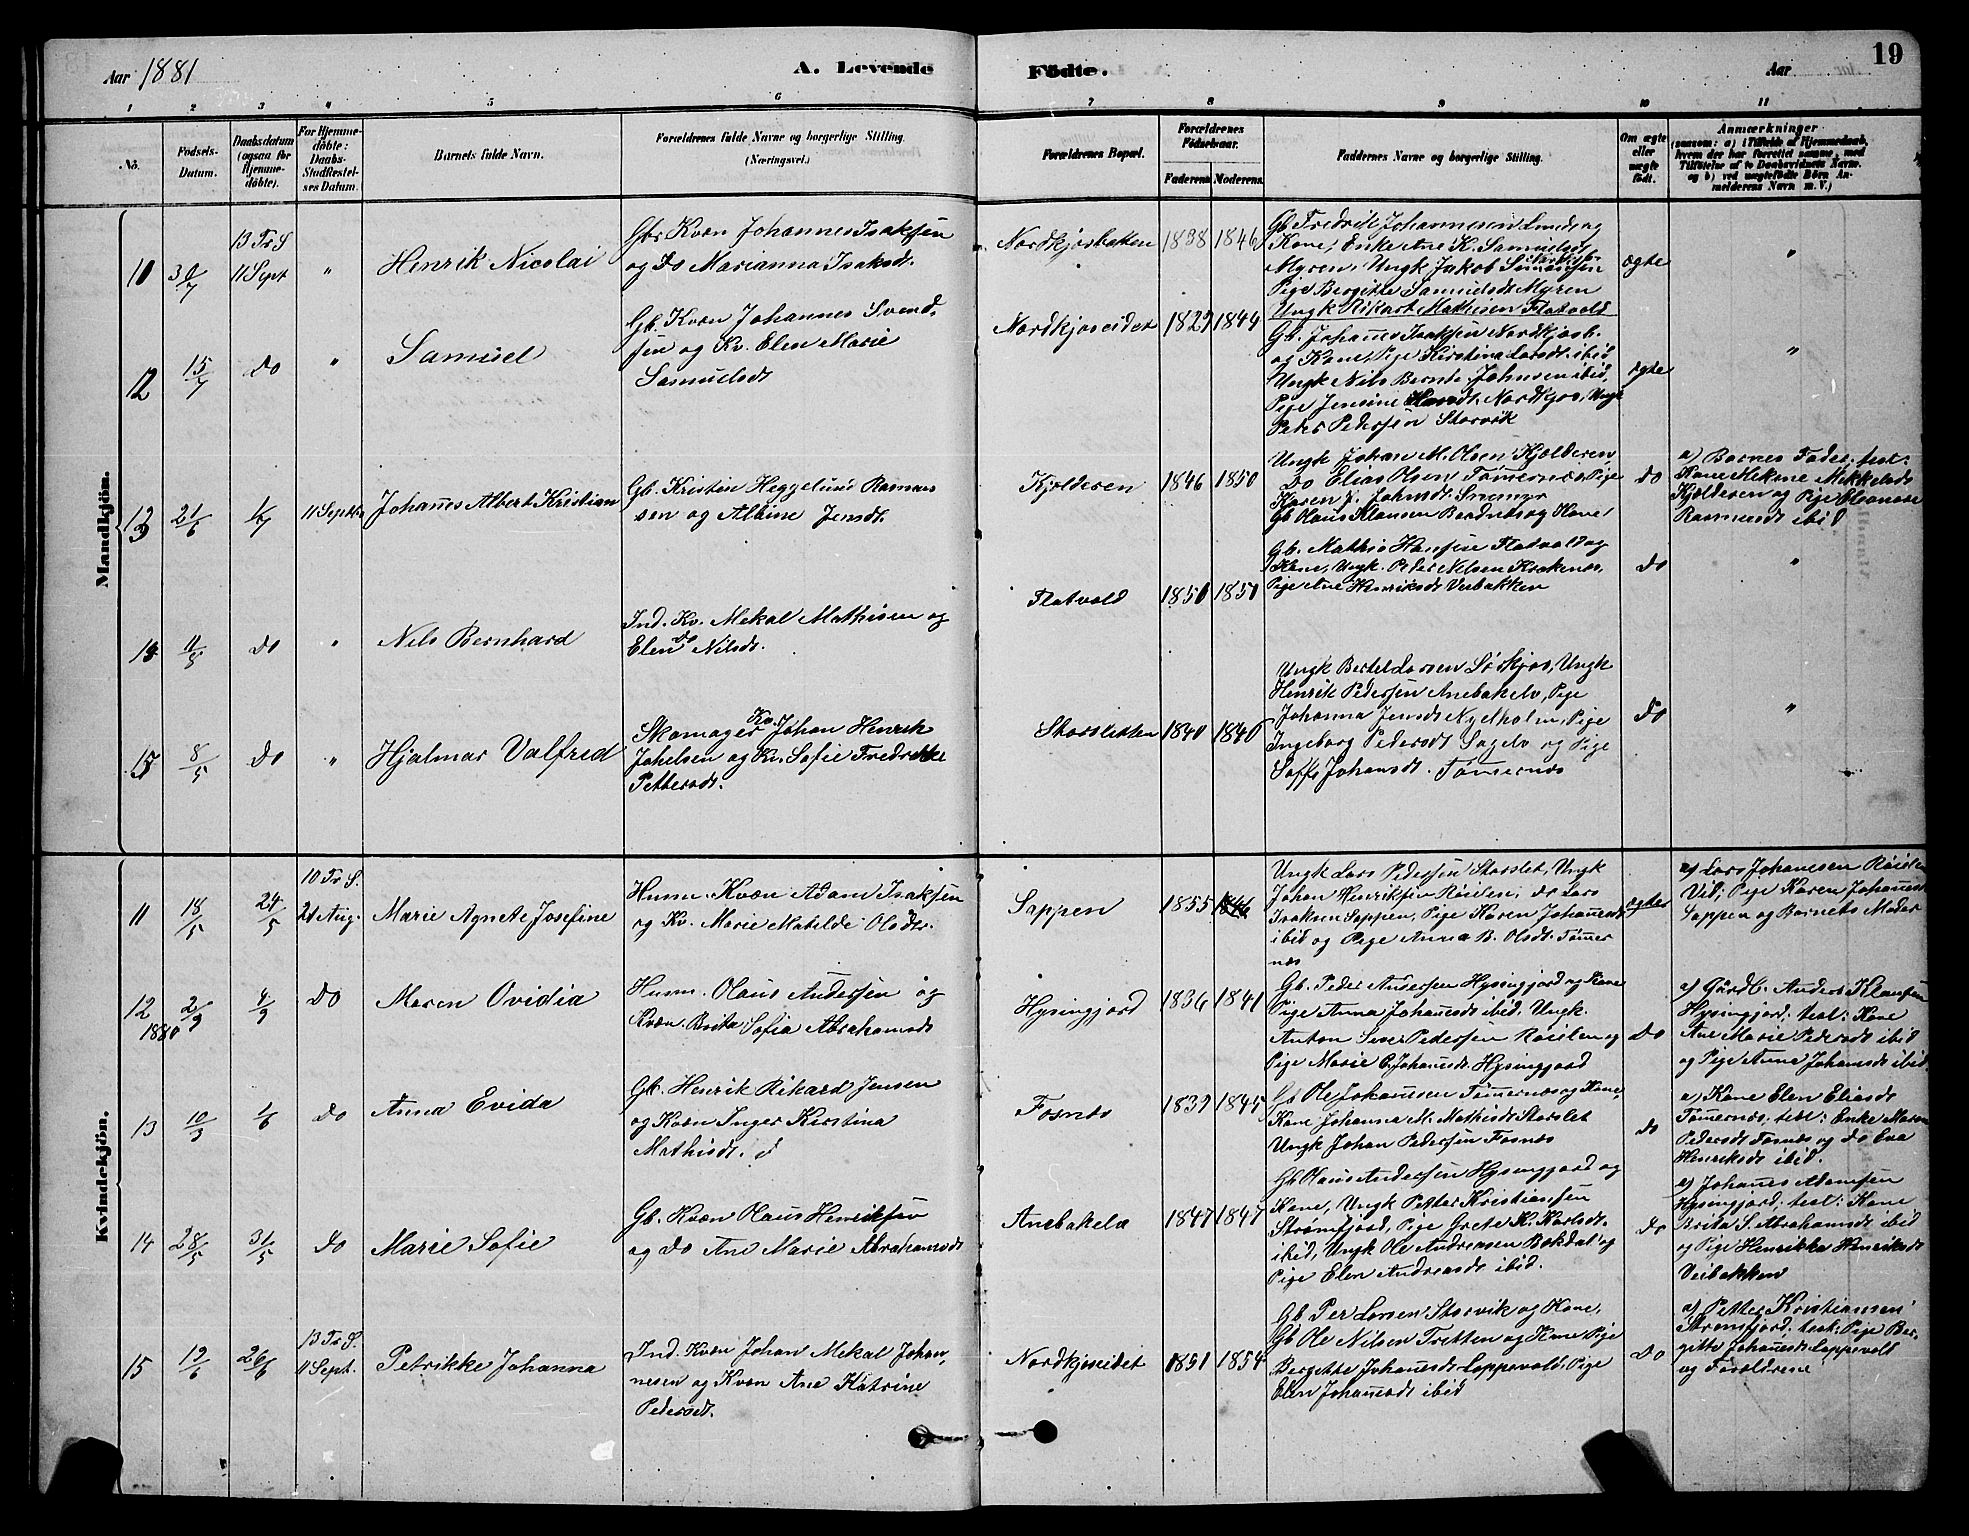 Aar 1881
A. Levende Födte.
Aar
19
1 2 3 4 5 6 7 8 9 10 11
No.
Födsels-Datum.
Daabsdatum (ogsaa for Hjemmedöbte).
For Hjemmedöbte: Daabs-Stadfæstelses Datum.
Barnets fulde Navn.
Forældrenes fulde Navne og borgerlige Stilling. (Næringsvei.)
Forældrenes Bopæl.
Forældrenes Födselsaar.
Faderens. Moderens.
Faddernes Navne og borgerlige Stilling.
Om ægte eller uægte födt.
Anmærkninger
(saasom: a) i Tilfælde af Hjemmedaab, hvem der har forrettet samme, med Tilföielse af to Daabsvidners Navne. og b) ved uægtefödte Börn Anmelderens Navn m. V.)
Mandkjön.
10 30/7 13 Tr S 11 Sept " Henrik Nicolai
Gbr Kvæn Johannes Isaksen
og Do Marianna Isaksd.
Nordkjosbotten 1838 1846
Gb Fredrik Johannesen Lund og
Kone, Enke Ane K. Samuelsd
Myren, Ungk Jakob Simonsen
Pige Bergitte Samuelsdt Myren
Ungk Rikart Mathisen Flatvold
ægte "
12 15/7 Do " Samuel
Gb. Kvæn Johannes Svend-
sen og Kv. Elen Marie
Samuelsdt
Nordkjoseidet 1829 1844
Gb. Johannes Isaksen Nordkjosb.
og Kone, Pige Kirstina Larsdt. ibid
Ungk Nils Bernt Johnsen ibid,
Pige Jensine Hansdt. Nordkjos, Ungk
Peder Pedersen Storvik
ægte "
13 21/6 1/7 11 Septbr Johannes Albert Kristian
Gb. Kristen Heggelund Rasmus
sen og Albine Jensdt.
Kjolderen 1846 1850
Ungk Johan M. Olsen Kjolderen
Do Elias Olsen Tömernes, Pige
Karen J. Johnsdt.
Gb Olaus Klausen og Kone,
Do
a) Barnets Fader; test:
Kone Mekine Mekkelsd
Kjolderen og Pige Eleonore
Rasmusdt ibid
14 11/8 Do " Nils Bernhard
Ind. Kv. Mekal Mathisen og
Elen Do Nilsdt.
Flatvold 1850 1850
Gb. Mathis Hansen Flatvold og
Kone, Ungk. Peder Nilsen Krækenes,
Pige Ane Henriksdt Veibakken
Do "
15 8/5 Do " Hjalmar Valfred
Skomager Kv. Johan Henrik
Johelsen og Kv. Sofie Fredrikke
Pettersdt.
Storsletten 1840 1840
Ungk Bertel Larsen Sörkjos, Ungk
Henrik Pedersen Anebakelv, Pige
Johanna Jensdt Nyelholm, Pige
Ingeborg Pedersdt Sagelv og Pige
Soffi Johansdt. Tömernes
Do "
Kvindekjön.
11 18/5 24/5 10 Tr S. 21 Aug. Marie Agnete Josefine
Husm. Kvæn Adam Isaksen
og Kv. Marie Matilde Olsdtr.
Sappen 1855 1846
Ungk Lars Pedersen Storslet, Ungk
Johan Henriksen Röielen, Do Lars
Isaksen Sappen, Pige Karen Johannesd
ibid og Pige Anna B. Olsdt. Tömer
nes
ægte
a) Lars Johanesen Röielen
Vid; Pige Karen Johannesd
Sappen og Barnets Moder
12 2/9 1880 4/9 Do Maren Ovidia
Husm. Olaus Andersen og
Kvæn. Brita Sofia Abrahamsdt
Hysingjord 1836 1841
Gb. Peder Andersen Hysingjord og Kone
Pige Anna Johannesdt ibid. Ungk.
Anton Sever Pedersen Röielen og
Pige Marie B. Johannesdt. Hysingjord
Do
a) Gaardb. Anders Klausen
Hysingjord; test: Kone
Ane Marie Pedersdt ibid
og Pige Anne Johansdt ibid.
13 10/3 1/6 Do Anna Evida
Gb. Henrik Rikard Jensen
og Kvæn Inger Kirstina
Mathisdt.
Fosnes 1839 1845
Gb Ole Johannesen Tömernes og Kone,
Kone Johanna M. Mathisdt Storslet
Ungk Johan Pedersen Fosnes
Do
a) Kone Elen Eliasdt
Tömernes, test: Enke Maren
Pedersdt Fosnes og Do Eva
Henriksdt ibid.
14 28/5 31/5 Do Marie Sofie
Gb. Kvæn Olaus Henriksen
og Do Ane Marie Abrahamsdt
Anebakelv 1847 1847
Gb Olaus Andersen Hysingjord og
Kone, Ungk Petter Kristiansen
Strömfjord, Pige Grete K. Karlsdt.
ibid, Ungk Ole Andreasen Bakdal og
Pige Elen Andreasdt ibid.
Do
a) Johannes Adamsen
Hysingjord; test: Kone
Brita S. Abrahamsdt ibid
og Pige Henrikka Henriksdt
Veibakken
15 12/6 26/6 13 Tr S. 11 Sept. Petrikke Johanna
Ind. Kvæn Johan Mekal Johan-
nesen og Kvæn Ane Katrine
Pedersdt.
Nordkjoseidet 1851 1854
Gb Per Larsen Storvik og Kone,
Gb Ole Nilsen Tretten og Kone Pige
Bergitte Johannesdt Loppevold, Pige
Elen Johannesdt ibid
Do
a) Petter Kristiansen
Strömfjord; test: Pige Ber-
gitte Johannesdt Loppevold
og Forældrene